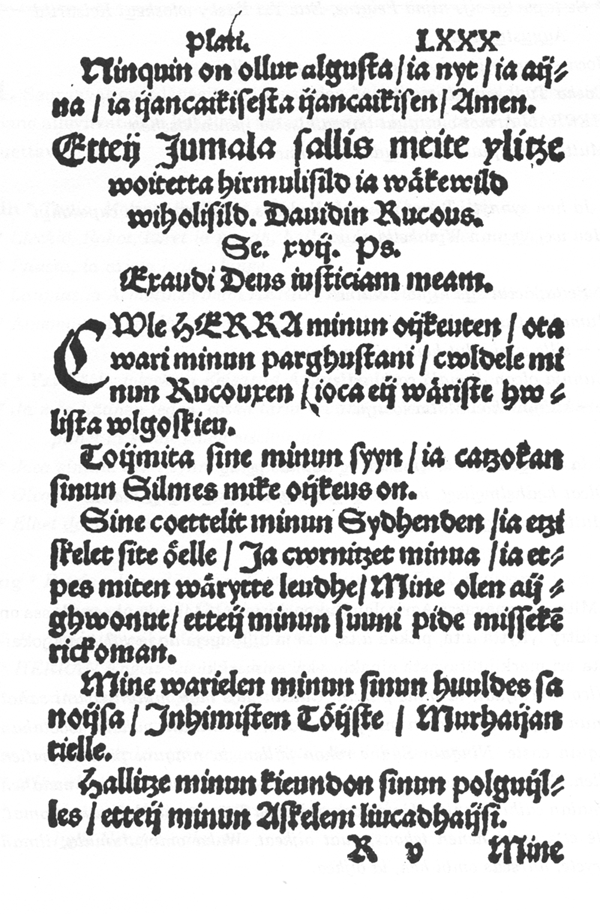 Plati. LXXX
Ninquin on ollut algusta / ia nyt / ia aij⸗
na / ia ijancaikisesta ijancaikisen / Amen.
Etteij Jumala sallis meite ylitze
woitetta hirmulisild ia wäkewild
wiholisild. Dauidin Rucous.
Se. xvij. Ps.
Exaudi Deus iusticiam meam.
CWle HERRA minun oijkeuten / ota
wari minun parghustani / cwldele mi
nun Rucouxen / ioca eij wäriste hw⸗
lista wlgoskieu.
Toijmita sine minun syyn / ia catzokan
sinun Silmes mike oijkeus on.
Sine coettelit minun Sydhenden / ia etzi
skelet site öelle / Ja cwrnitzet minua / ia et⸗
pes miten wärytte leudhe / Mine olen aij⸗
ghwonut / etteij minun suuni pide missekē
rickoman.
Mine warielen minun sinun huuldes sa
noijsa / Jnhimisten Töijste / Murhaijan
tielle.
Hallitze minun kieundon sinun polguijl⸗
les / etteij minun Askeleni liucadhaijsi.
R v Mine